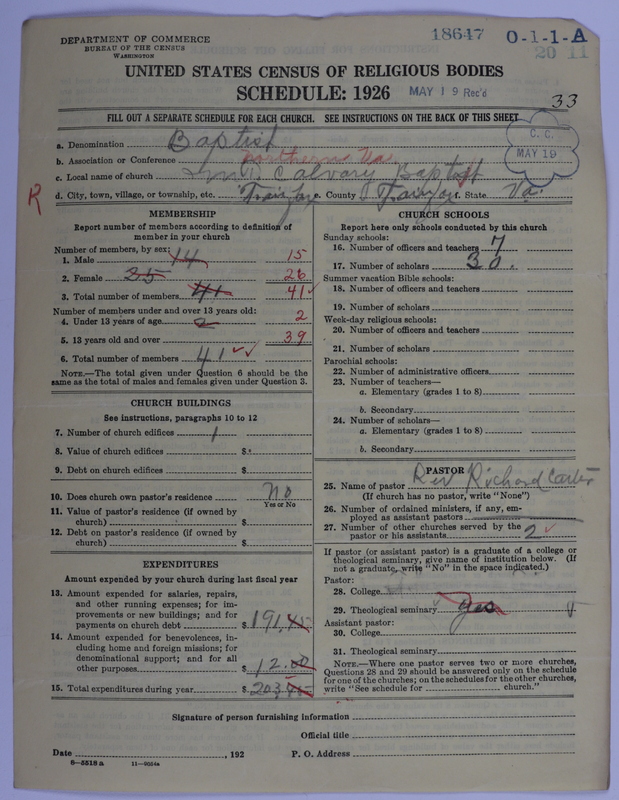 DEPARTMENT OF COMMERCE
BUREAU OF THE CENSUS
WASHINGTON
18647 O-1-1-A
20 11
UNITED STATES CENSUS OF RELIGIOUS BODIES
SCHEDULE: 1926
MAY 19 Rec'd
33
FILL OUT A SEPARATE SCHEDULE FOR EACH CHURCH. SEE INSTRUCTIONS ON THE BACK OF THIS SHEET
C. C.
MAY 19
a. Denomination Baptist
b. Association or Conference Northern Va.
c. Local name of church Calvary Baptist
R
d. City, town, village, or township, etc. Fairfax e. County Fairfax f. State Va.
MEMBERSHIP
Report number of members according to definition of
member in your church
Number of members, by sex:
1. Male 14 15
2. Female 35 26
3. Total number of members 41 41
Number of members under and over 13 years old:
4. Under 13 years of age 2 2
5. 13 years old and over 39
6. Total number of members 41
NOTE.—The total given under Question 6 should be
the same as the total of males and females given under Question 3.
CHURCH BUILDINGS
See instructions, paragraphs 10 to 12
7. Number of church edifices 1
8. Value of church edifices $
9. Debt on church edifices $
10. Does church own pastor's residence No
Yes or No
11. Value of pastor's residence (if owned by
church) $
12. Debt on pastor's residence (if owned by
church) $
EXPENDITURES
Amount expended by your church during last fiscal year
13. Amount expended for salaries, repairs,
and other running expenses; for im-
provements or new buildings; and for
payments on church debt $ 191.45
14. Amount expended for benevolences, in-
cluding home and foreign missions; for
denominational support; and for all
other purposes $ 12.00
15. Total expenditures during year $ 203.45
CHURCH SCHOOLS
Report here only schools conducted by this church
Sunday schools:
16. Number of officers and teachers 7
17. Number of scholars 30.
Summer vacation Bible schools:
18. Number of officers and teachers
19. Number of scholars
Week-day religious schools:
20. Number of officers and teachers
21. Number of scholars
Parochial schools:
22. Number of administrative officers
23. Number of teachers—
a. Elementary (grades 1 to 8)
b. Secondary
24. Number of scholars—
a. Elementary (grades 1 to 8)
b. Secondary
PASTOR
25. Name of pastor Rev Richard Carter
(If church has no pastor, write "None")
26. Number of ordained ministers, if any, em-
ployed as assistant pastors
27. Number of other churches served by the
pastor or his assistants 2
If pastor (or assistant pastor) is a graduate of a college or
theological seminary, give name of institution below. (If
not a graduate, write "No" in the space indicated.)
Pastor:
28. College
29. Theological seminary yes
Assistant pastor:
30. College
31. Theological seminary
NOTE.—Where one pastor serves two or more churches,
Questions 28 and 29 should be answered only on the schedule
for one of the churches; on the schedules for the other churches,
write "See schedule for church."
Signature of person furnishing information
Official title
Date , 192 P. O. Address
8—5518 a 11—9084a